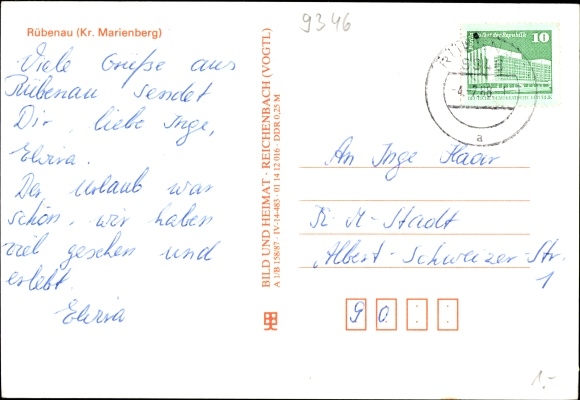 Rübenau (Kr. Marienberg)
Viele Grüße aus
Rübenau sendet
Dir, liebe Inge,
Elvira.
Der Urlaub war
schön, wir haben
viel gesehen und
erlebt.
Elvira
BILD UND HEIMAT · REICHENBACH (VOGTL)
A 1/B 158/87 · IV-14-483 · 01 14 12 016 · DDR 0,25 M
9346
der Republik 10
a
An Inge Haar
K.-M.-Stadt
Albert-Schweizer-Str.
1
90
1.-